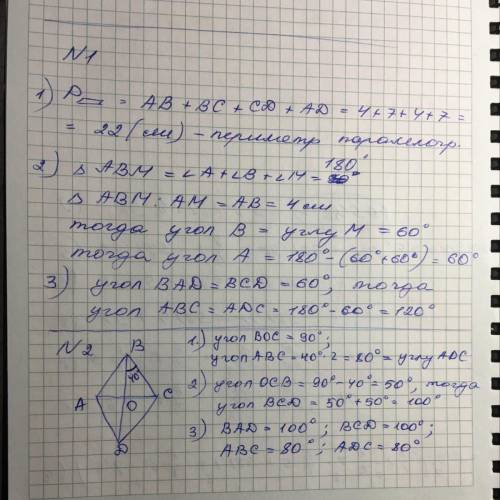 N1
1) P▱ = AB + BC + CD + AD = 4+7+4+7 =
= 22 (см) – периметр параллелогр.
2) △ ABM = ∠A + ∠B + ∠M = 180°
△ ABM: AM = AB = 4 см
тогда угол B = углу M = 60°
тогда угол A = 180° - (60°+60°) = 60°
3) угол BAD = BCD = 60°, тогда
угол ABC = ADC = 180° - 60° = 120°
N2
B
A
O
C
D
1.) угол BOC = 90°;
угол ABC = 40°·2 = 80° = углу ADC
2) угол OCB = 90° - 40° = 50°, тогда
угол BCD = 50° + 50° = 100°
3) BAD = 100°; BCD = 100°;
ABC = 80°; ADC = 80°